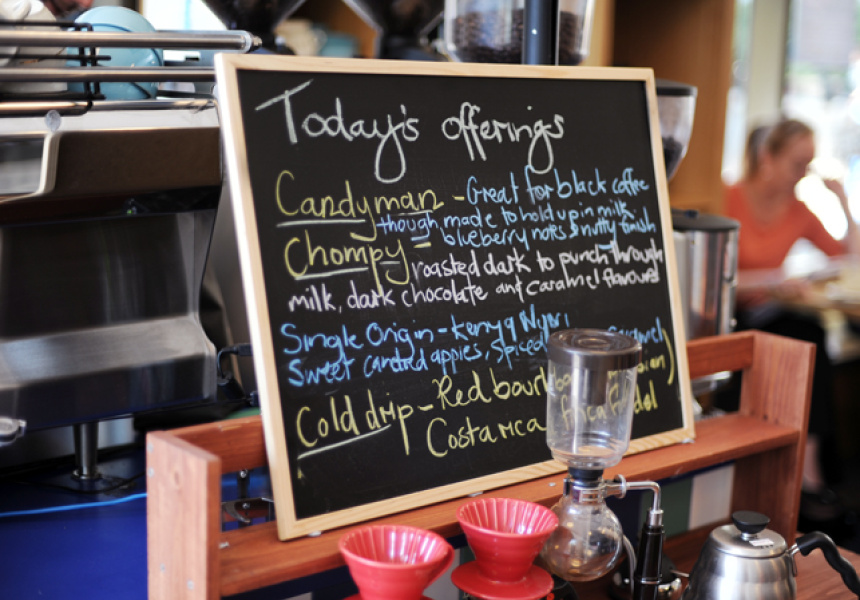 Today's offerings
Candyman - Great for black coffee
though made to hold up in milk
blueberry notes & nutty finish
Chompy - roasted dark to punch through
milk, dark chocolate and caramel flavours
Single Origin - Kenya Nyeri caramel
Sweet candied apples, spiced
Cold drip - Red bourbon
Costa rica